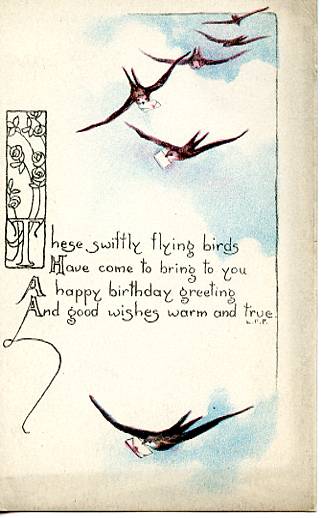 These swiftly flying birds
Have come to bring to you
A happy birthday greeting
And good wishes warm and true.